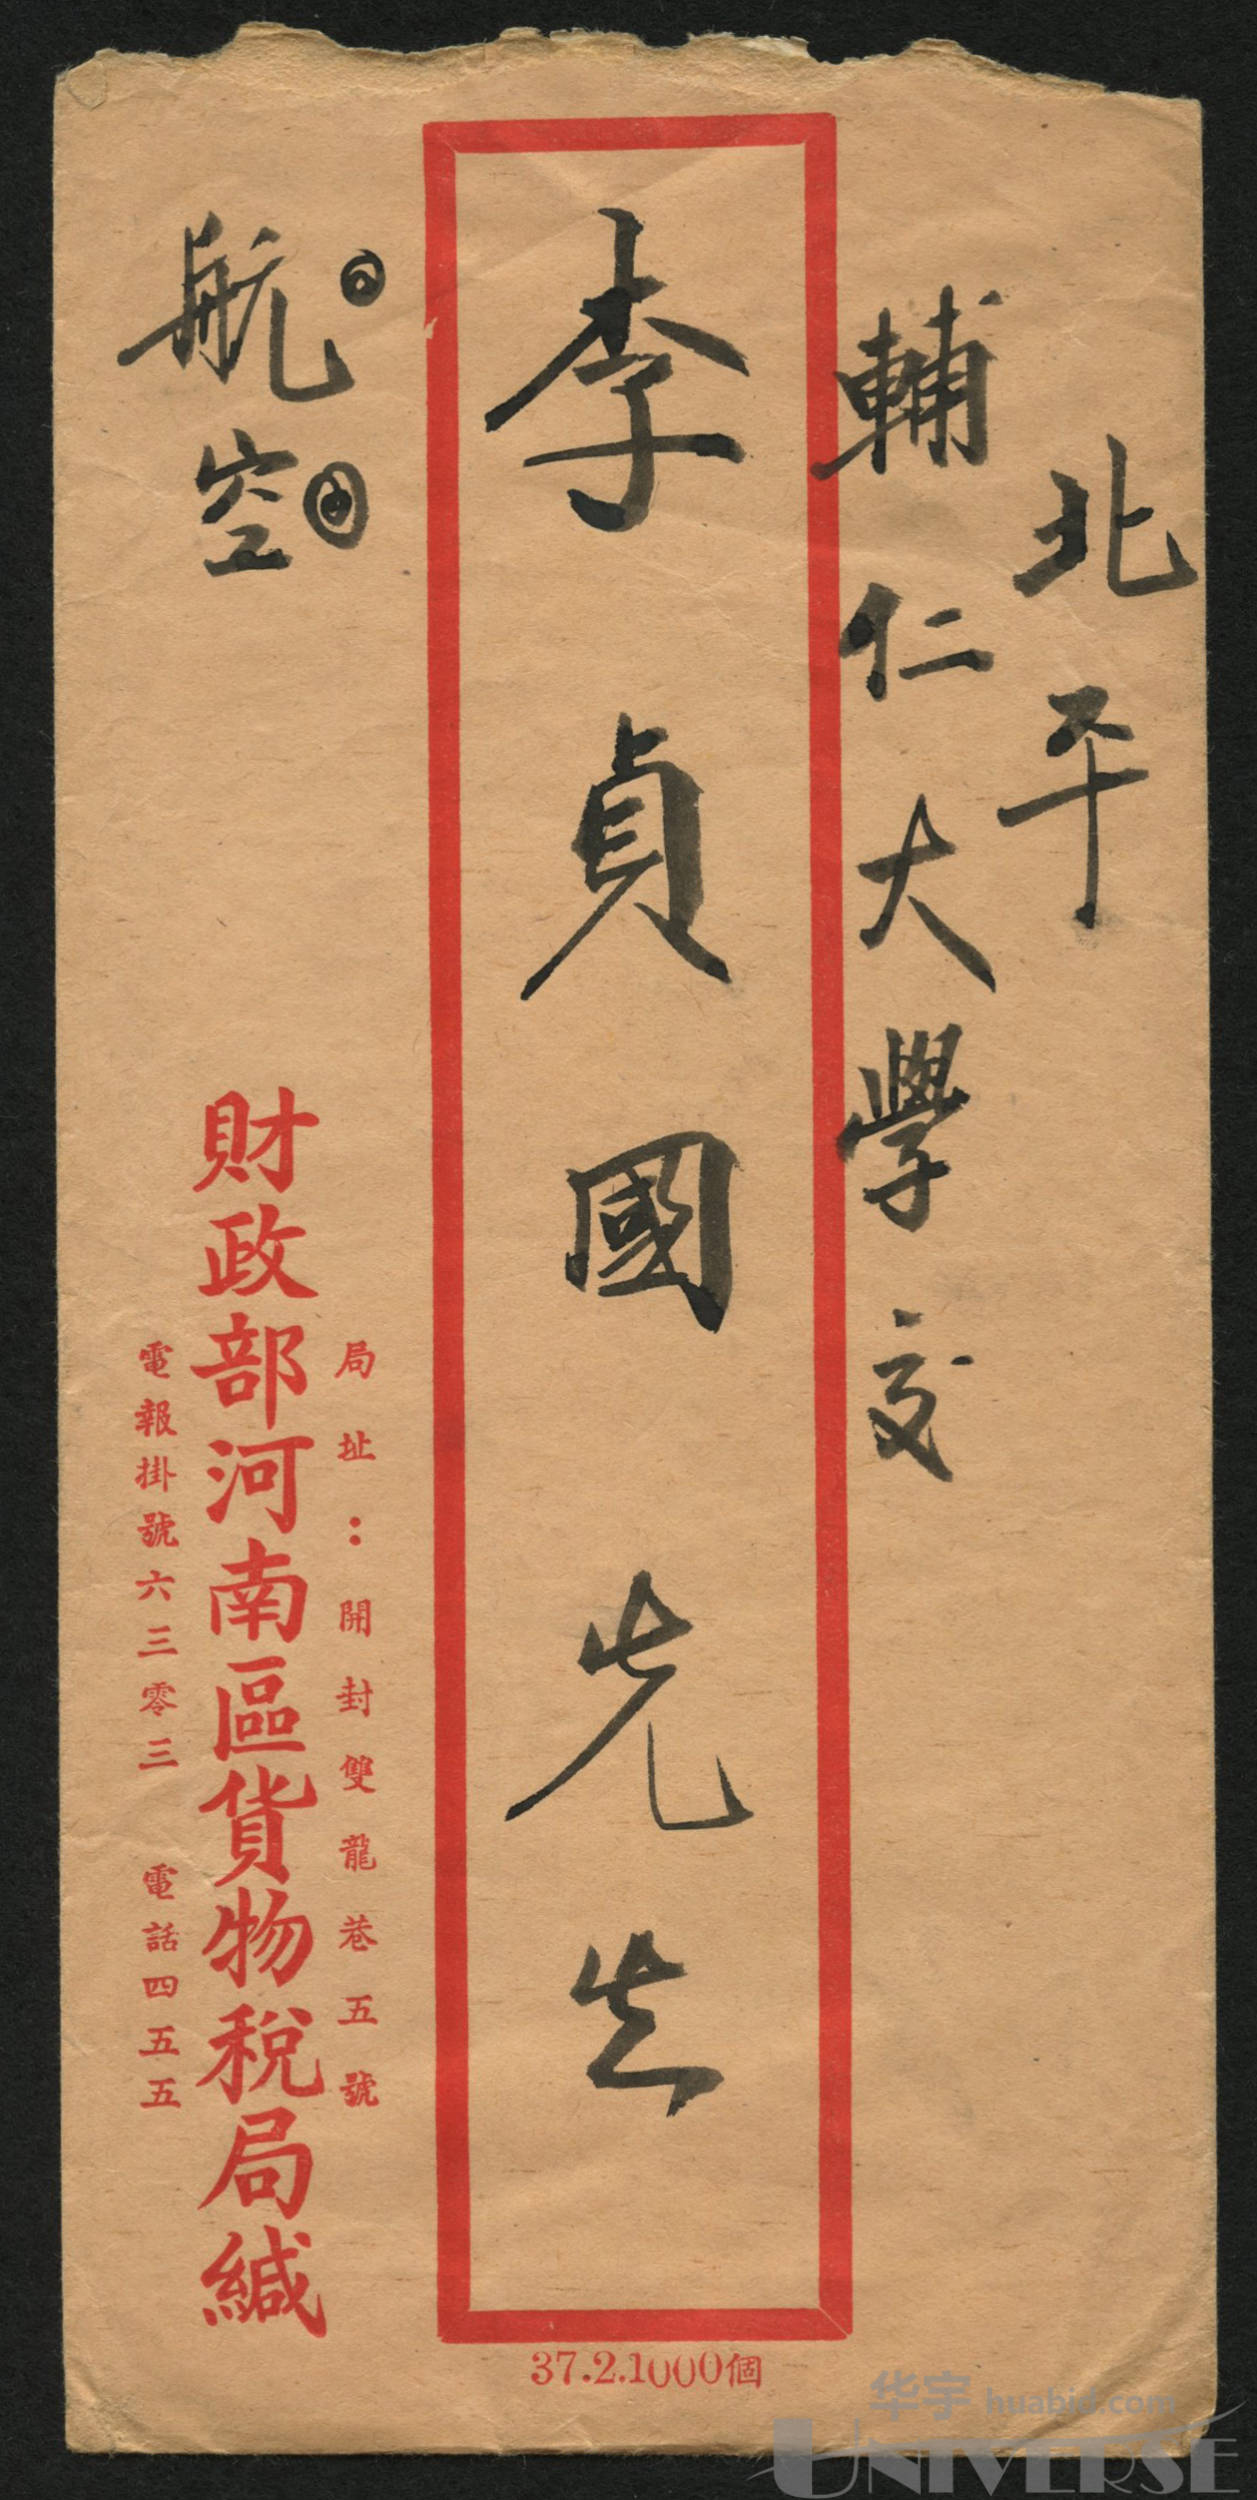 北平
輔仁大學交
李貞國先生
航空
局址：開封雙龍巷五號
財政部河南區貨物税局緘
電報掛號六三零三 電話四五五
37.2.1000個
华宇 huabid.com
UNIVERSE